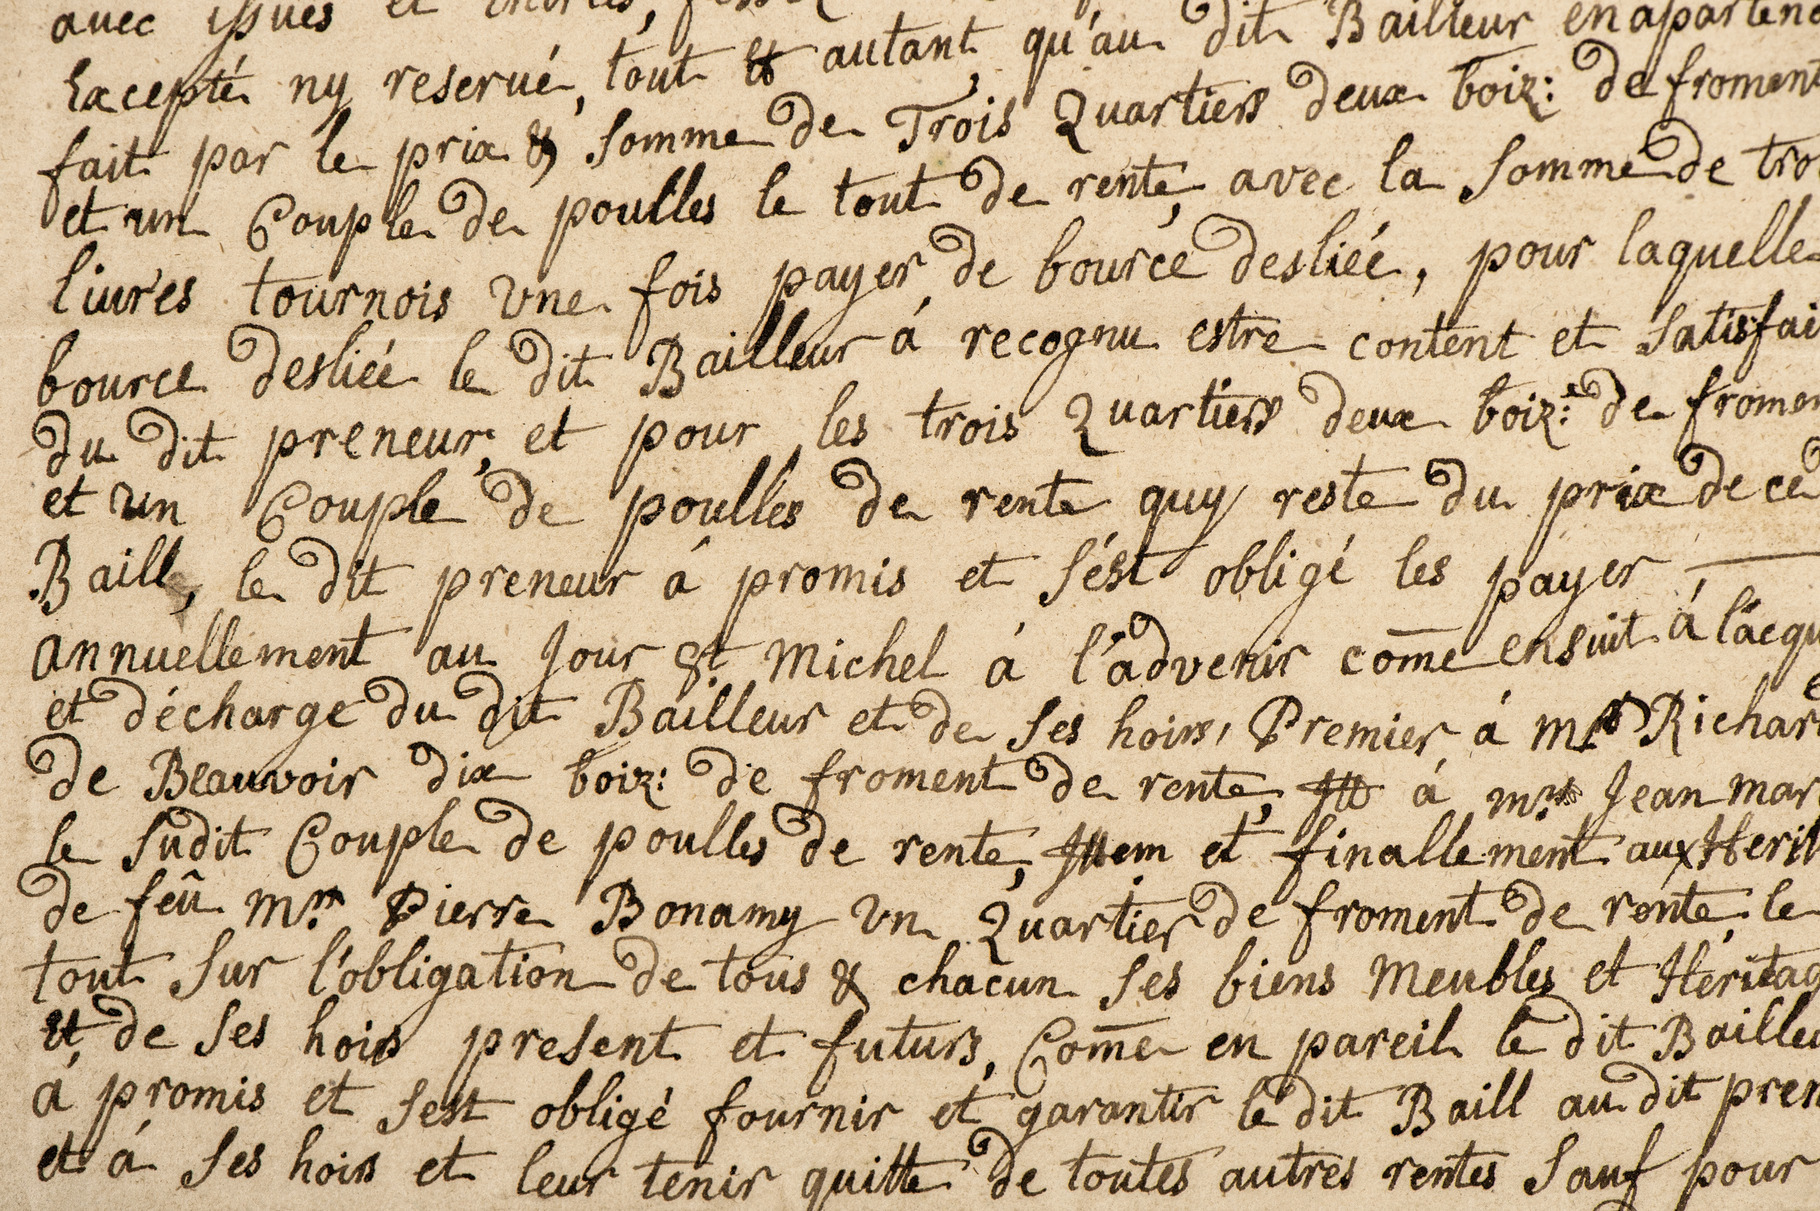 avec issues et
Excepté ny reservé, tout et autant qu'au dit Bailleur en apartena
fait par le prix & somme de Trois Quartiers deux boiz: de froment
et un Couple de poulles le tout de rente, avec la somme de tro
livres tournois vne fois payer de bource desliée, pour laquelle
bource desliée le dit Bailleur á recognu estre content et satisfai
du dit preneur, et pour les trois Quartiers deux boiz: de fromen
et un Couple de poulles de rente quy reste du prix de ce
Baill, le dit preneur á promis et s'ést obligé les payer
annuellement au Jour St Michel á l'advenir cōme ensuit á l'acqu
et décharge du dit Bailleur et de ses hoirs, Premier á mr Richar
de Beauvoir dix boiz: de froment de rente, Itt á mr Jean mar
le sudit Couple de poulles de rente, Ittem et finallement aux Herit
de feû mr Pierre Bonamy vn Quartier de froment de rente, le
tout sur l'obligation de tous & chacun ses biens meubles et Heritag
et de ses hoirs present et futurs, Cōme en pareil le dit Bailleu
á promis et sest obligé fournir et garantir le dit Baill au dit pren
et á ses hoirs et leur tenir quitte de toutes autres rentes sauf pour